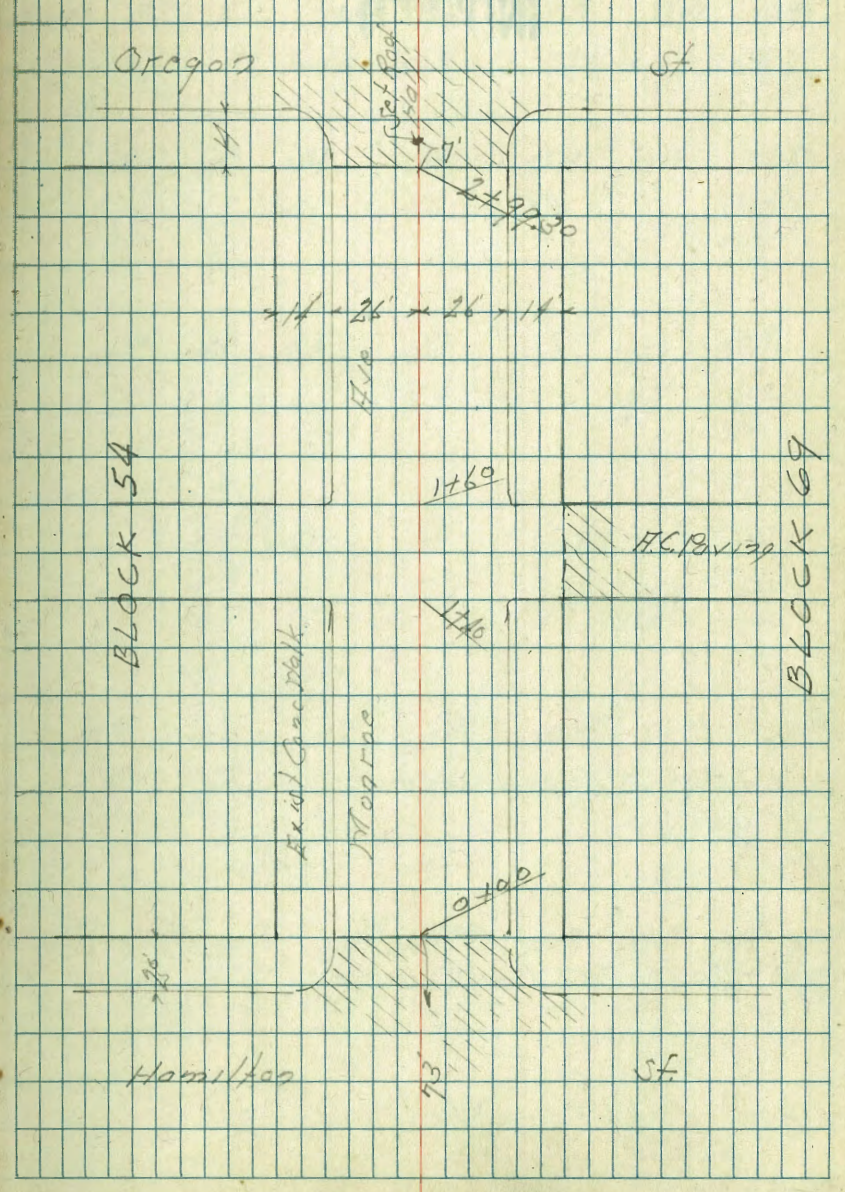 Oregon St.
Set Rad
14
7'
2+99.30
14 26' 26' 14'
Ave
1+60
BLOCK 54
A.C. Paving
BLOCK 69
1+40
Exist Conc Walk
Monroe
0+00
Hamilton St.
73'